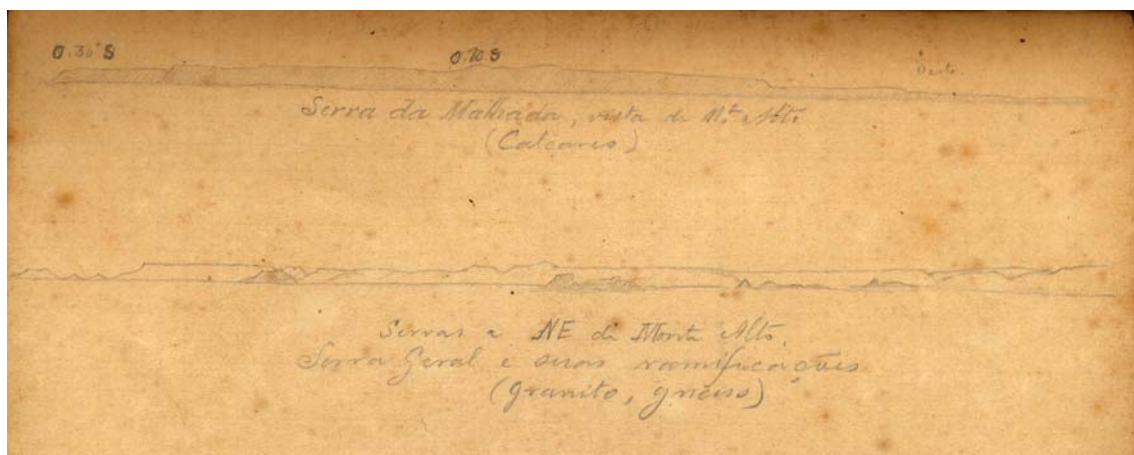 O.30°S O.70.S Oeste
Serra da Malhada, vista de Mte Alto
(Calcareo)
Serras a NE de Monte Alto.
Serra Geral e suas ramificações
(granito, gneiss)